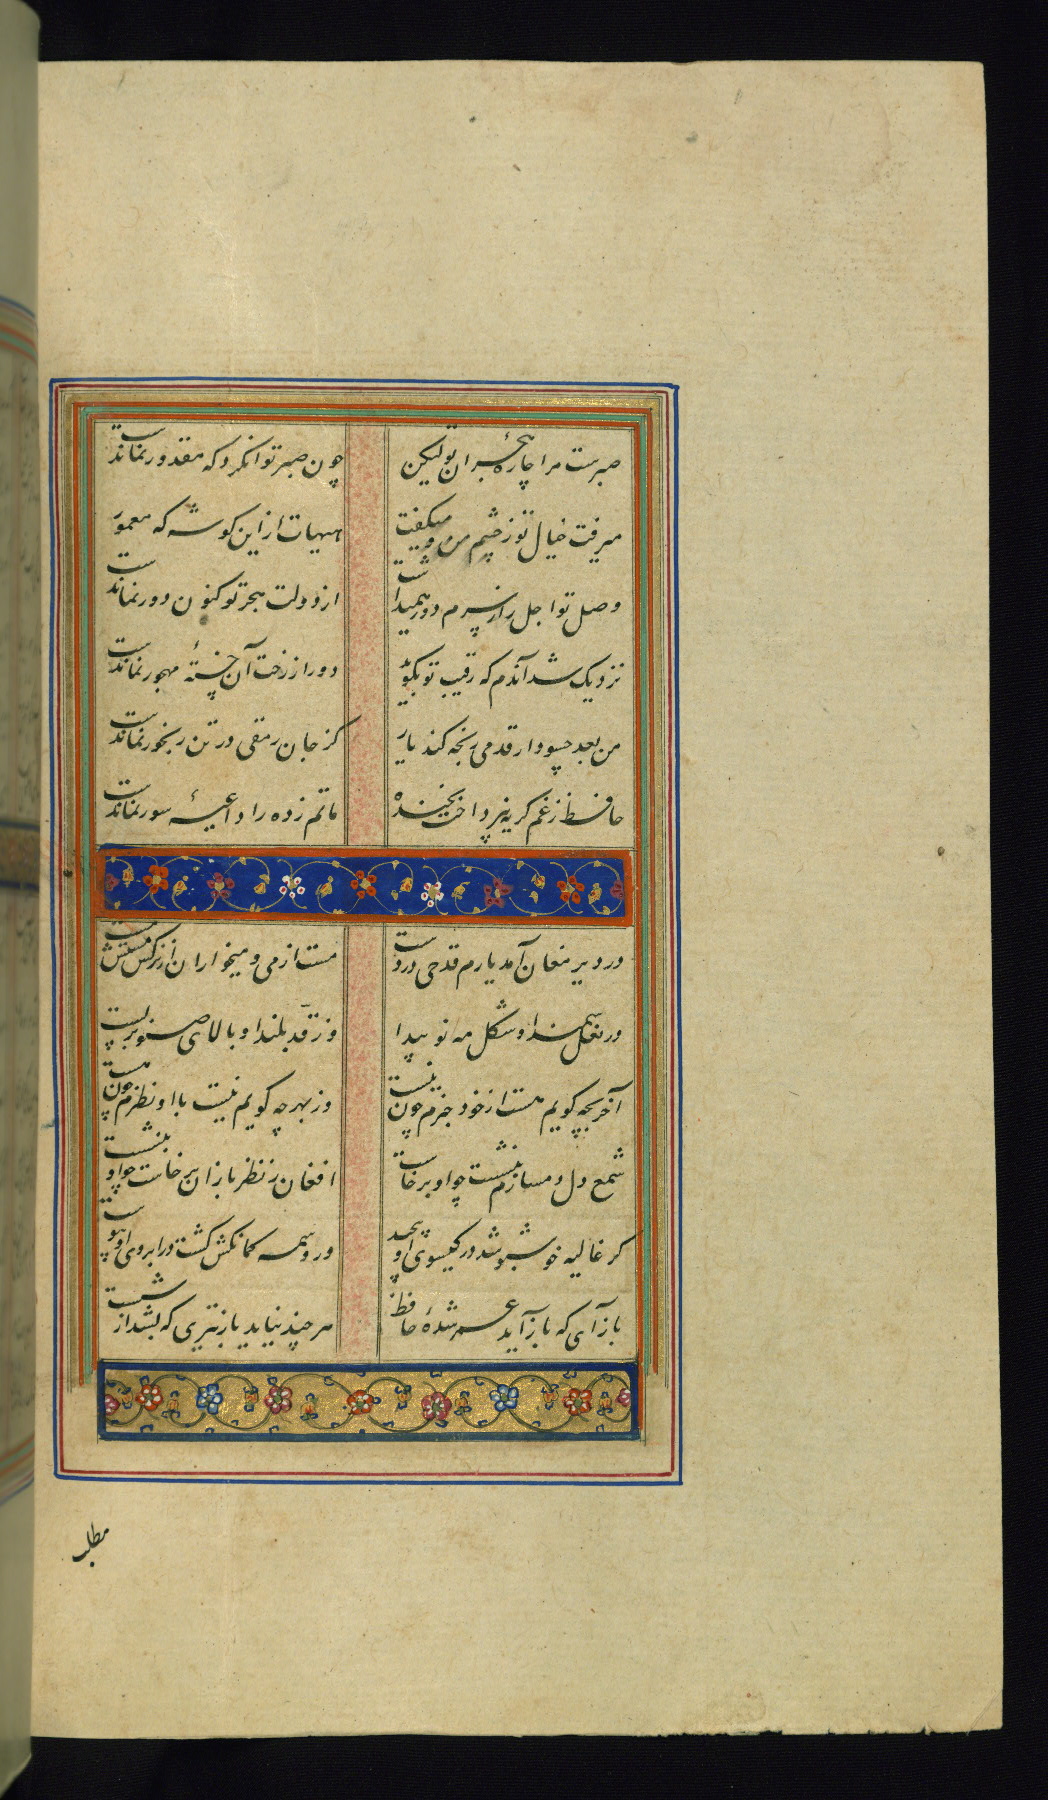 صبرست مرا چارهٔ هجران تو لیکن چون صبر توان کرد که مقدور نماندست
میرفت خیال تو ز چشم من و میگفت هیهات از این گوشه که معمور نماندست
وصل تو اجل را ز سرم دور همیداشت از دولت هجر تو کنون دور نماندست
نزدیک شد آندم که رقیب تو بگوید دور از رخت آن خستهٔ مهجور نماندست
من بعد چه سود ار قدمی رنجه کند یار کز جان رمقی در تن رنجور نماندست
حافظ ز غم گریه نپرداخت بخنده ماتم زده را داعیهٔ سور نماندست
در دیر مغان آمد یارم قدحی در دست مست از می و میخواران از نرگس مستش مست
در نعل سمند او شکل مه نو پیدا وز قد بلند او بالای صنوبر پست
آخر بچه گویم هست از خود خبرم چون نیست وز بهر چه گویم نیست با او نظرم چون هست
شمع دل دمسازم بنشست چو او برخاست افغان ز نظر بازان برخاست چو او بنشست
گر غالیه خوشبو شد در گیسوی او پیچید ور وسمه کمانکش گشت در ابروی او پیوست
بازآی که بازآید عمر شدهٔ حافظ هر چند نیاید باز تیری که بشد از شست
مطلب